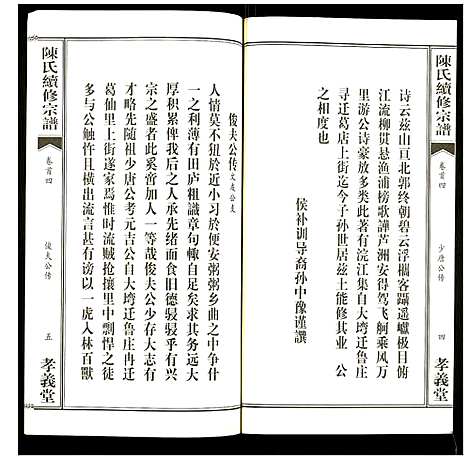 陳氏續修宗譜
卷首四
少唐公傳
四
孝義堂
诗云兹山亘北郭终朝碧云浮搁客蹑遥巘极目俯
江流柳贯悬渔浦榜歌譁芦洲安得驾飞舸乘风万
里游公诗豪放多类此著有浣江集自大塆迁鲁庄
寻迁葛店上街迄今子孙世居兹土能修其业 公
之相度也
侯补训导裔孙中豫谨譔
陳氏續修宗譜
卷首四
俊夫公傳
五
孝義堂
俊夫公传 文友公支
人情莫不狃於近小习於便安粥粥乡曲之中争什
一之利薄有田庐粗識章句輒自足矣求其务远大
厚积累俾我后之人承先绪而食旧德駸駸乎有兴
宗之盛者此奚啻加人一等哉俊夫公少存大志有
才略先随祖少唐公考元吉公自大塆迁鲁庄冉迁
葛仙里上街遂家焉惟时流贼抢攘里中剽悍之徒
多与公触忤且横出流言甚有谤以一虎入林百獸